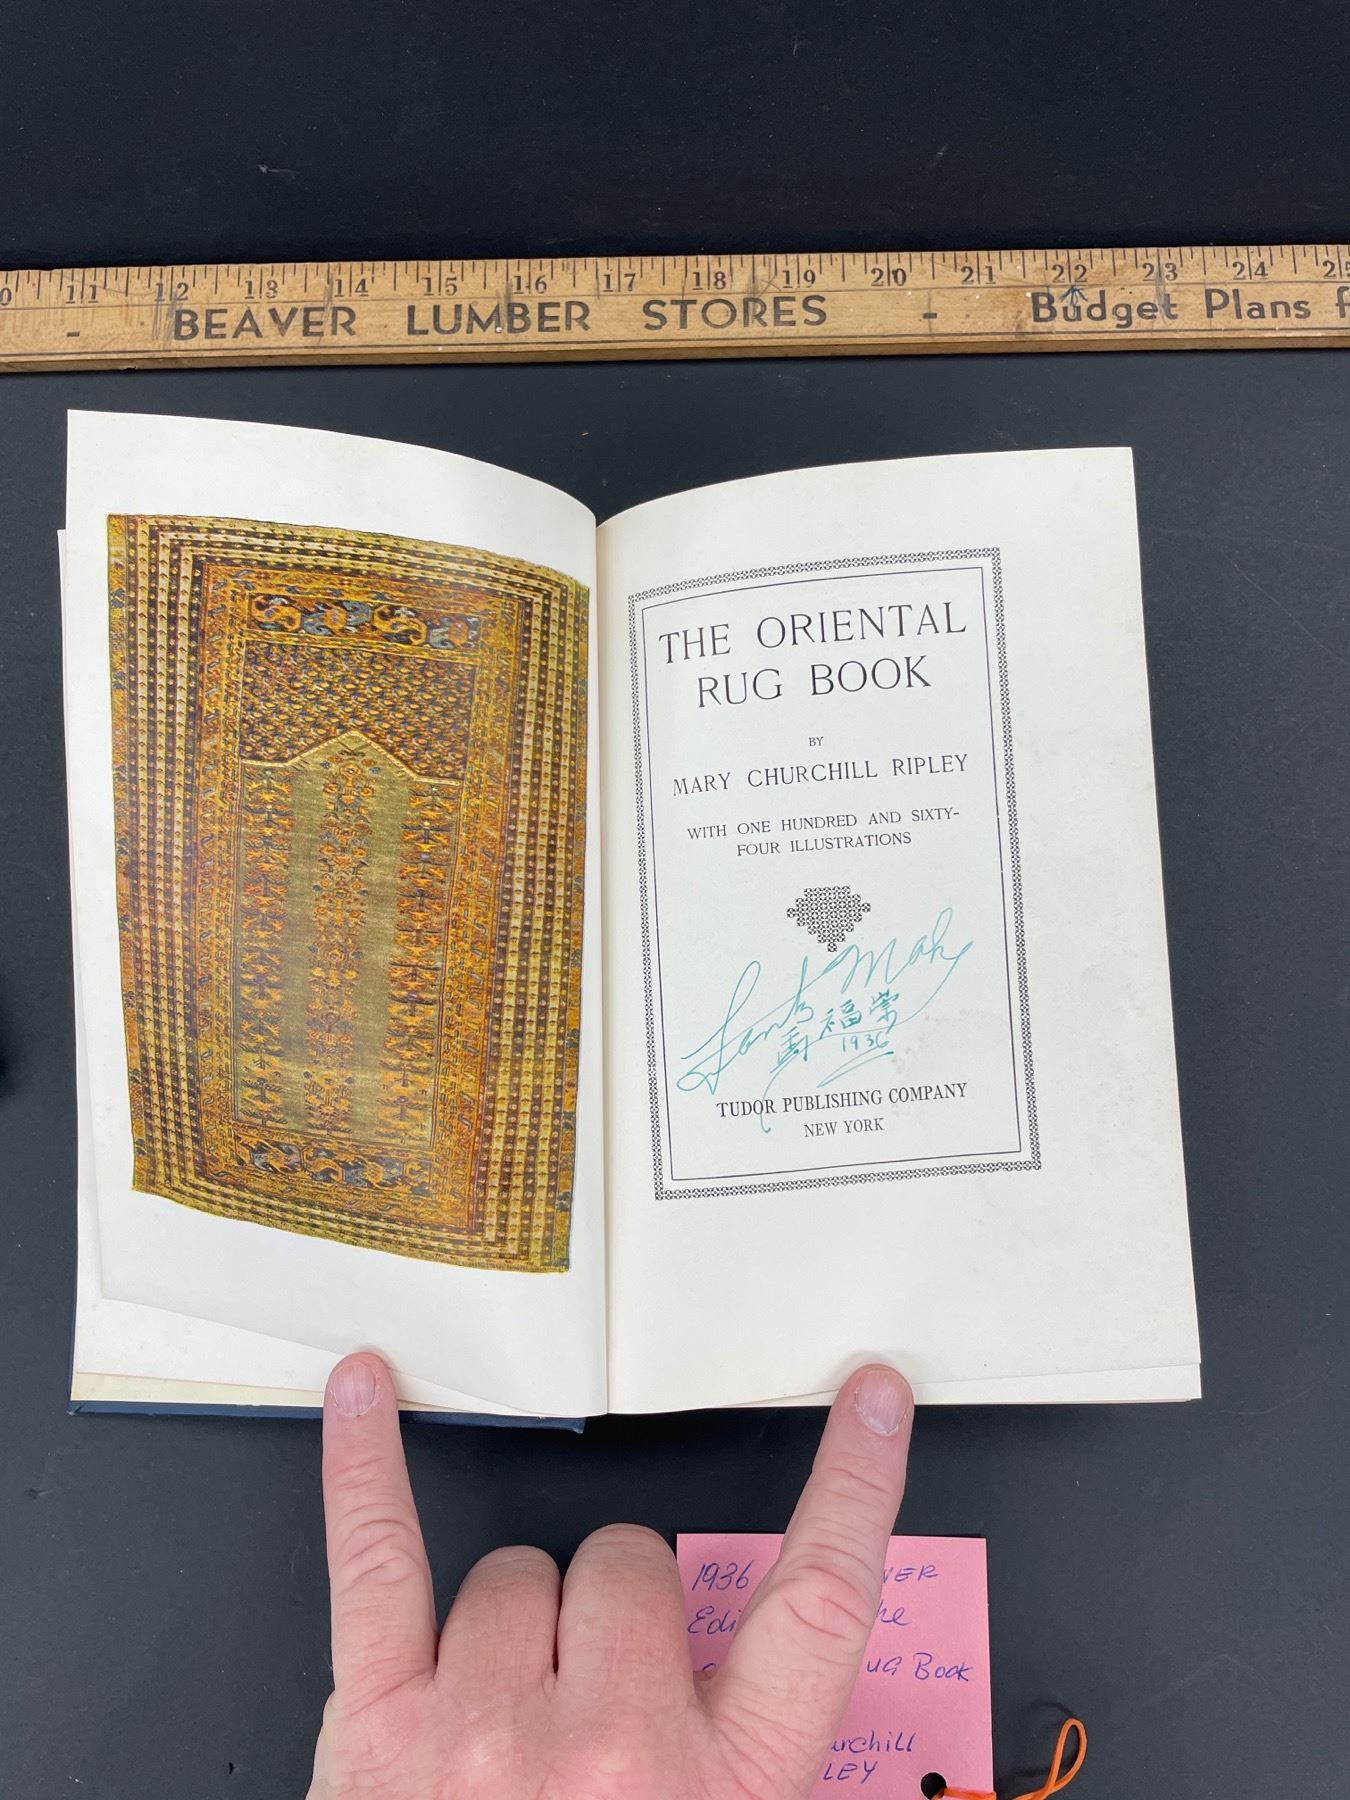 11 12 13 14 15 16 17 18 19 20 21 22 23 24 25
- BEAVER LUMBER STORES - Budget Plans
THE ORIENTAL
RUG BOOK
BY
MARY CHURCHILL RIPLEY
WITH ONE HUNDRED AND SIXTY-
FOUR ILLUSTRATIONS
福崇
1936
TUDOR PUBLISHING COMPANY
NEW YORK
1936
UG Book